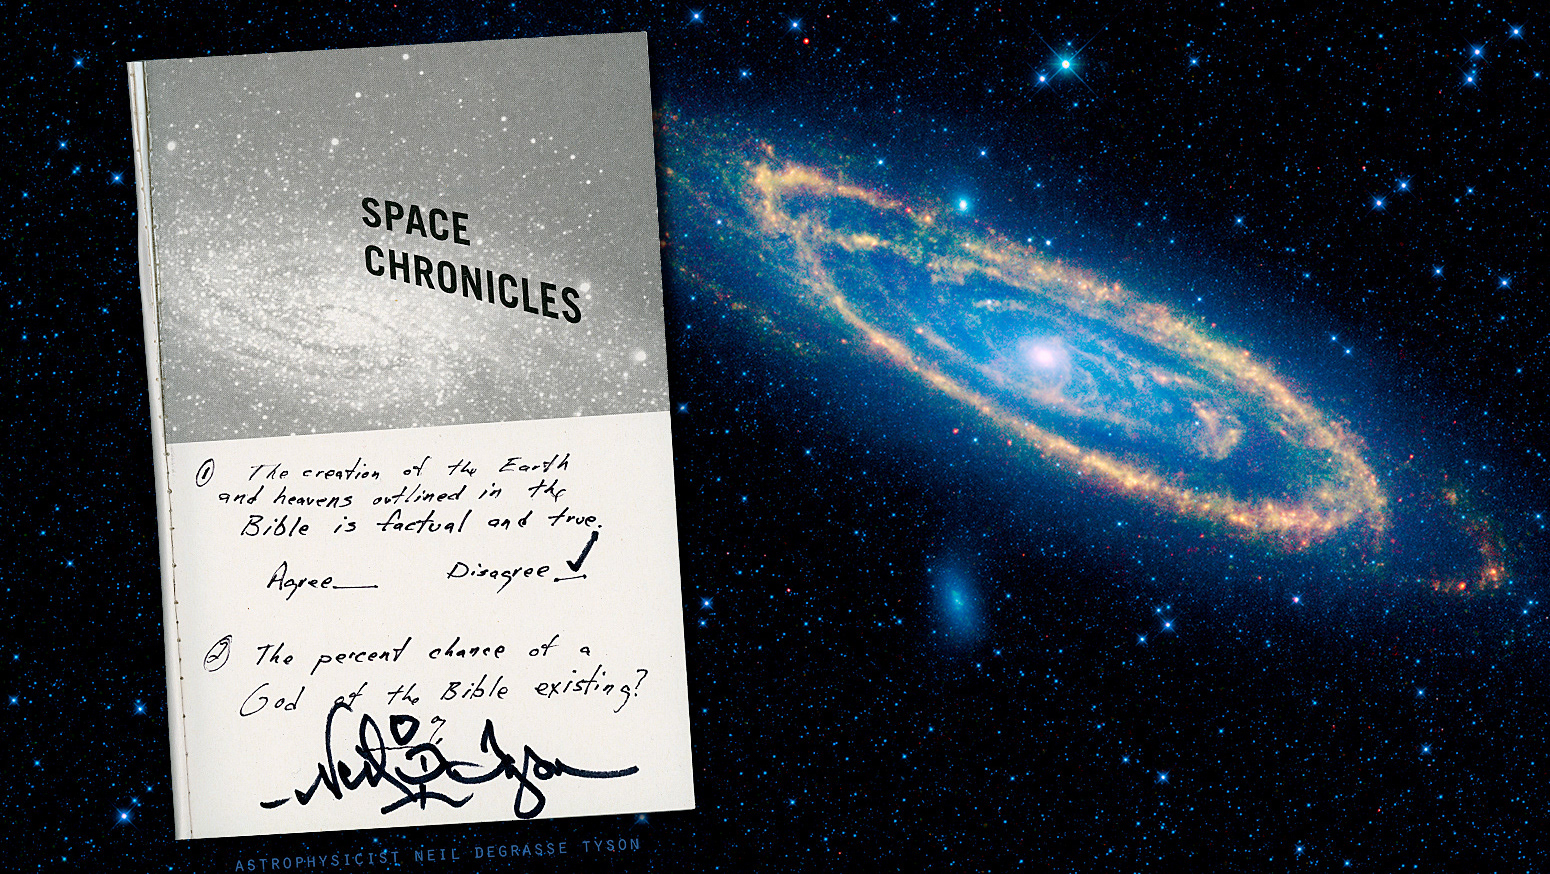 SPACE
CHRONICLES
① The creation of the Earth
and heavens outlined in the
Bible is factual and true.
Agree__ Disagree ✓
② The percent chance of a
God of the Bible existing?
0 %
Neil D Tyson
ASTROPHYSICIST NEIL DEGRASSE TYSON